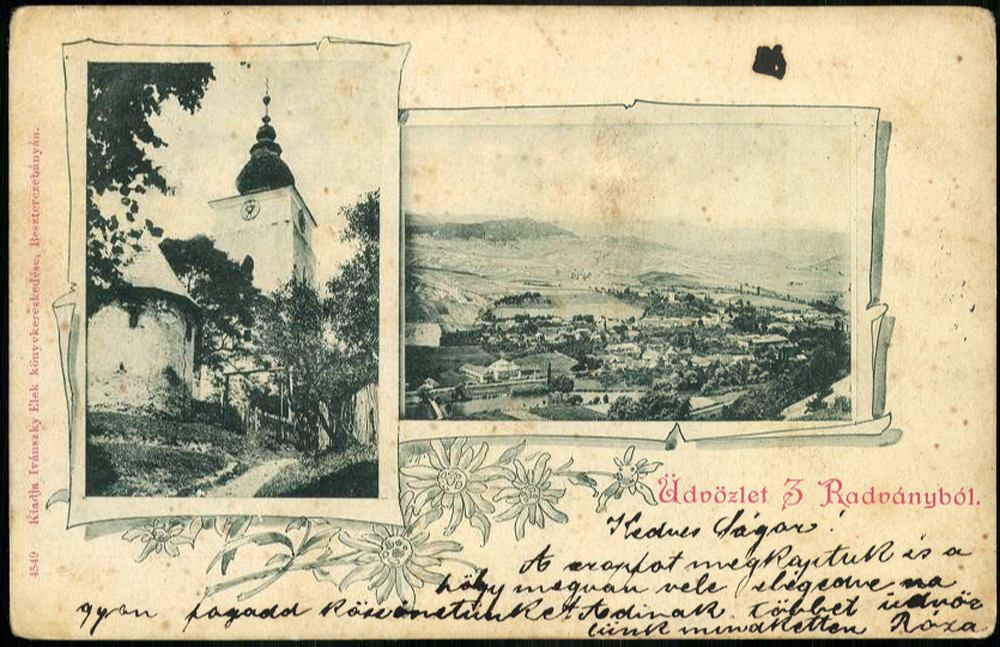 4549 Kiadja Ivánszky Elek könyvkereskedése, Beszterczebányán.
Üdvözlet Z Radványból.
Kedves Ságor!
A megkaptuk és a
hogy megvan vele elégedve na
gyon fogadd köszönetünket többet üdvöz
lünk mindketten Róza